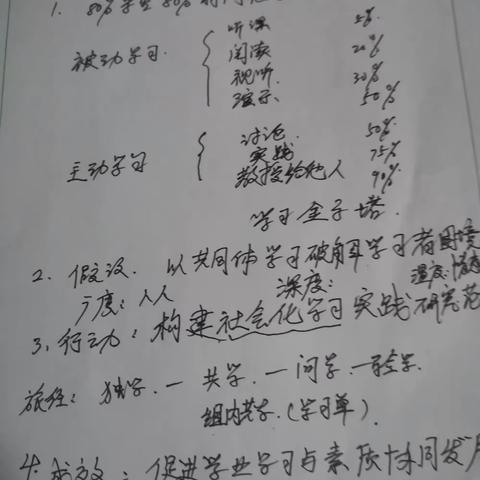 1. 80%学生80%
听课 5%
被动学习 阅读 20%
视听 30%
演示 50%
讨论 50%
主动学习 实践 75%
教授给他人 90%
学习金子塔.
2. 假设. 以共同体学习破解学习者困境
广度: 人人 深度: 温度:
3. 行动: 构建社会化学习实践研究范
旅程: 独学. 一共学. 一问学. 一
组内共学. (学习单)
4. 成效: 促进学业学习与素质协同发